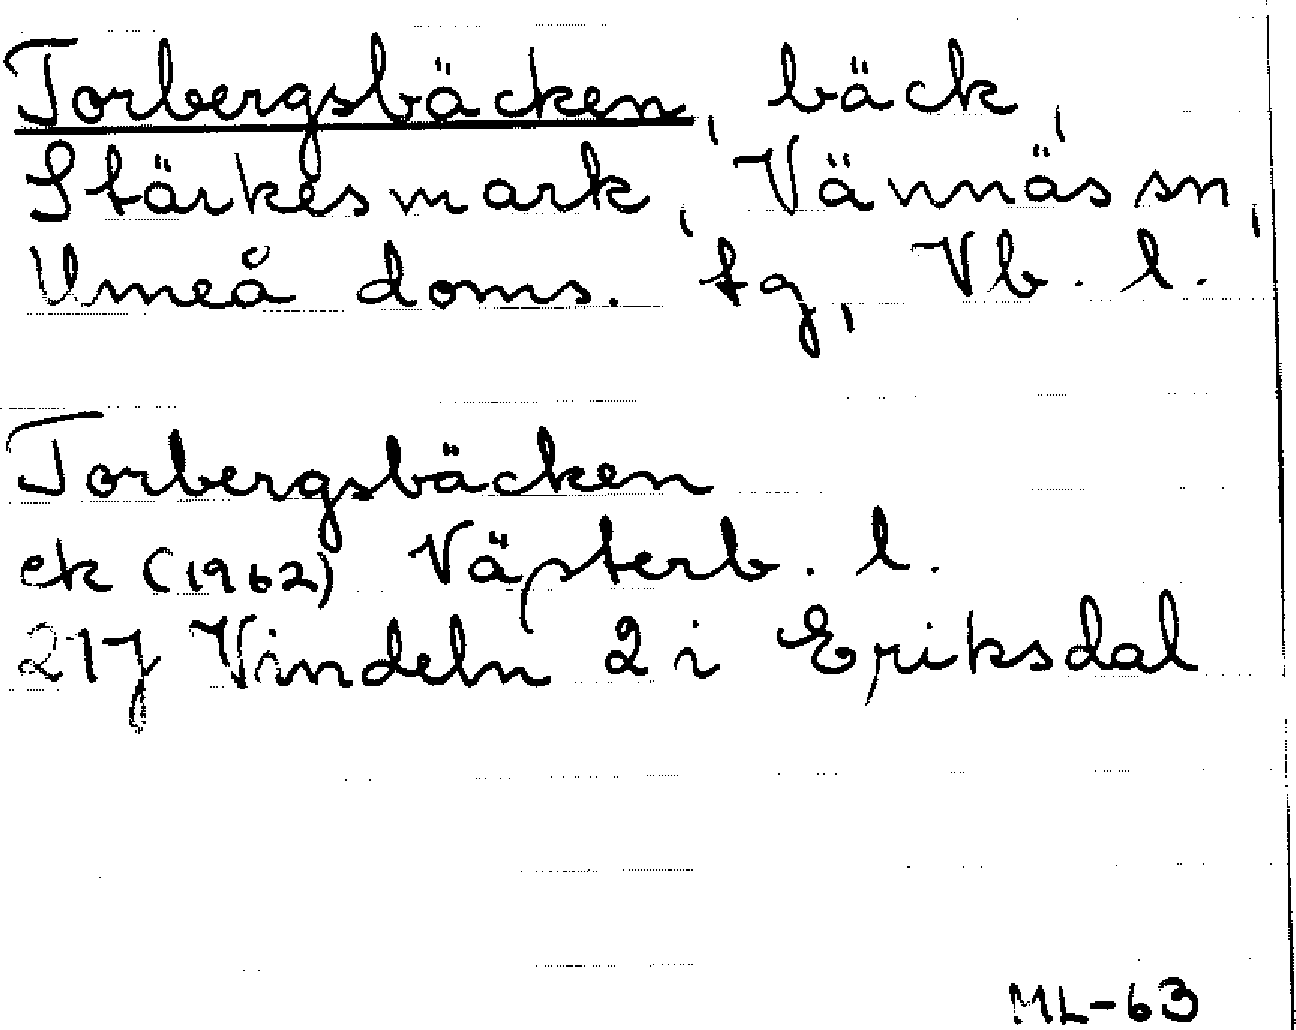 Torbergsbäcken, bäck,
Stärkesmark, Vännäs sn,
Umeå doms. tg, Vb. l.
Torbergsbäcken
ek (1962) Västerb. l.
21J Vindeln 2 i Eriksdal
ML-63